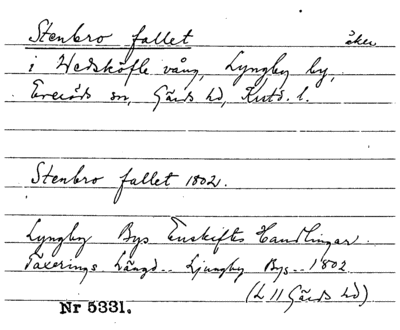 Stenbro fallet åker
i Wedsköfle vång, Lyngby by,
Everöds sn, Gärds hd, Kristd. l.
Stenbro fallet 1802.
Lyngby Bys Enskiftes Handlingar.
Taxerings Längd.. Ljungby Bys.. 1802
(L 11 Gärds hd)
Nr 5331.